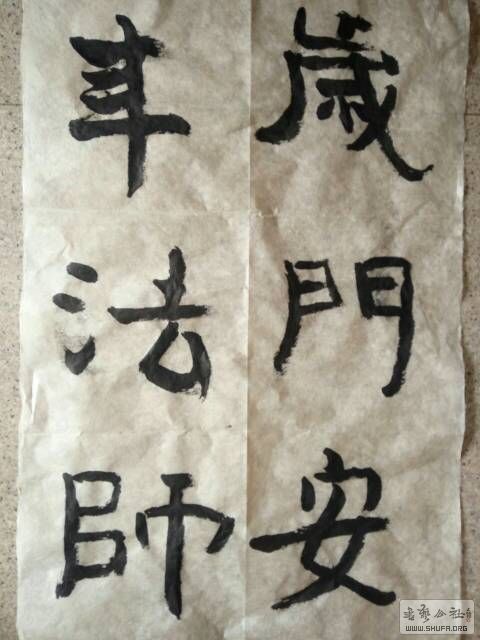 歳門安
年法師
書藝公社
WWW.SHUFA.ORG